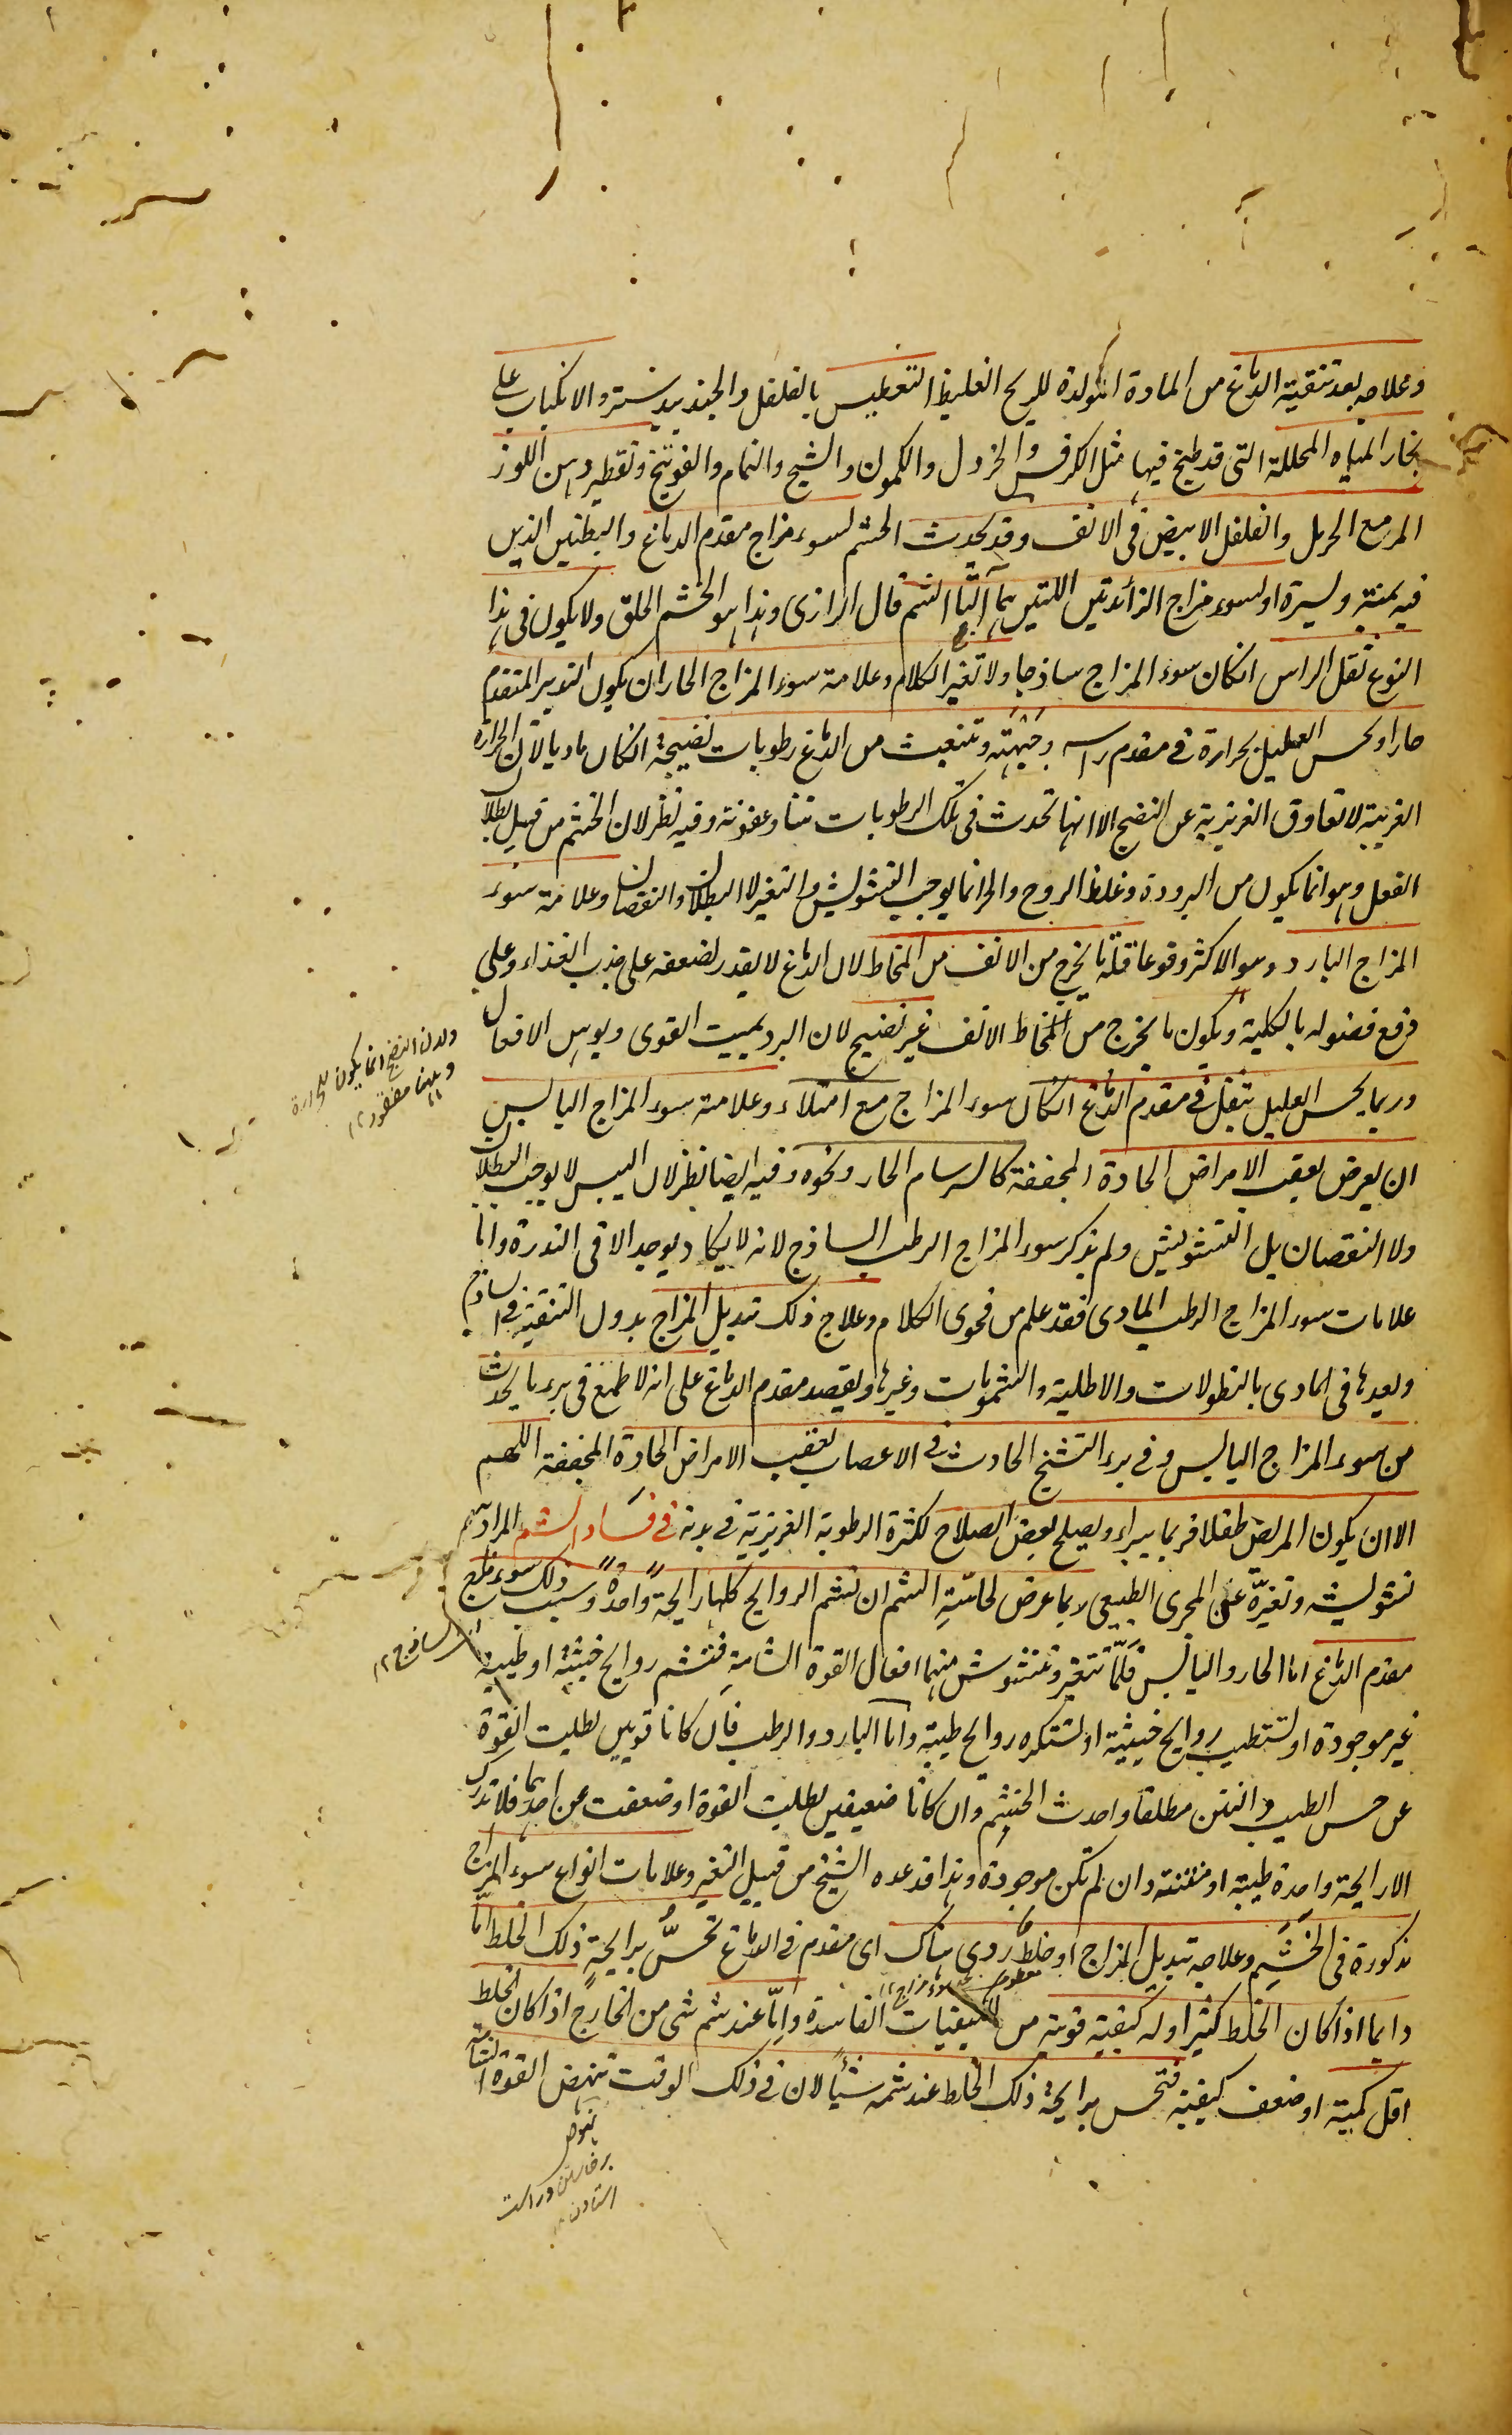 وعلاجه بعد تنقية الدماغ من المادة المولدة للريح الغليظ التعطيس بالفلفل والجندبيدستر والانكباب على
بخار المياه المحللة التى قد طبخ فيها مثل الكرفس والخردل والكمون والشيح والنمام والفوتنج وتقطير دهن اللوز
المر مع الحرمل والفلفل الابيض فى الانف وقد يحدث الخشم لسوء مزاج مقدم الدماغ والبطنين الذين
فيه يمنة ويسرة او لسوء مزاج الزائدتين اللتين هما آلتا الشم قال الرازى وهذا هو الخشم الخلق ولا يكون فى هذا
النوع ثقل الراس انكان سوء المزاج ساذجا ولا تغير الكلام وعلامة سوء المزاج الحار ان يكون التدبير المتقدم
حارا ويحس العليل بحرارة فى مقدم راسه وجبهته وتنبعث من الدماغ رطوبات نضيجة انكان ماديا لان الحرارة
الغريبة لا تعاوق الغريزية عن النضج الا انها تحدث فى تلك الرطوبات نتنا وعفونة وفيه نظر لان الخشم من قبيل بطلان
الفعل وهو انما يكون من البرودة وغلظ الروح والحر انما يوجب التشويش والتغير لا البطلان والنقصان وعلامة سوء
المزاج البارد وهو الاكثر وقوعا قلة ما يخرج من الانف من المخاط لان الدماغ لا يقدر لضعفه على جذب الغذاء وعلى
دفع فضوله بالكلية ويكون ما يخرج من المخاط الانف غير نضيج لان البرد يميت القوى ويوهن الافعال
وربما يحس العليل بثقل فى مقدم الدماغ انكان سوء المزاج مع امتلاء وعلامة سوء المزاج اليابس
ان يعرض بعقب الامراض الحادة المجففة كالسرسام الحار ونحوه وفيه ايضا نظر لان اليبس لا يوجب البطلان
ولا النقصان بل التشويش ولم يذكر سوء المزاج الرطب الساذج لانه لا يكاد يوجد الا فى الندرة واما
علامات سوء المزاج الرطب المادى فقد علم من فحوى الكلام وعلاج ذلك تبديل المزاج بدون التنقية فى الساذج
وبعدها فى المادى بالنطولات والاطلية والشمومات وغيرها ويقصد مقدم الدماغ على انه لا طمع فى برء ما يحدث
من سوء المزاج اليابس وفى برء التشنج الحادث فى الاعصاب بعقب الامراض الحادة المجففة اللهم
الا ان يكون المريض طفلا فربما يبراء ويصلح بعض الصلاح لكثرة الرطوبة الغريزية فى بدنه فى فساد الشم المراد بهم
تشويشه وتغيره عن المجرى الطبيعى ربما عرض لحاسة الشم ان تشم الروايح كلها رايحة واحدة وسبب ذلك سوء مزاج
مقدم الدماغ اما الحار واليابس فلما تتغير وتتشوش منهما افعال القوة الشامة فتشم روايح خبيثة او طيبة
غير موجودة او تستطيب روايح خبيثة او تستكره روايح طيبة واما البارد والرطب فان كانا قويين بطلت القوة
عن حس الطيب والنتن مطلقا واحدث الخشم وان كانا ضعيفين بطلت القوة او ضعفت عن احدهما فلا تدرك
الا رايحة واحدة طيبة او منتنة وان لم تكن موجودة وهذا قد عده الشيخ من قبيل التغير وعلامات انواع سوء المزاج
مذكورة فى الخشم وعلاجه تبديل المزاج او خلط ردى هناك اى مقدم فى الدماغ تحس برايحة ذلك الخلط اما
دايما اذا كان الخلط كثيرا وله كيفية قوية من الكيفيات الفاسدة واما عند شم شى من الخارج اذا كان الخلط
اقل كمية او ضعف كيفية فتحس برايحة ذلك الخلط عند شمه شيئا لان فى ذلك الوقت تنهض القوة الشامة
ولان النضج انما يكون للحرارة
وههنا مفقود ١٢
الساذج ١٢
نهوض
برخاستن وراست
استادن ١٢